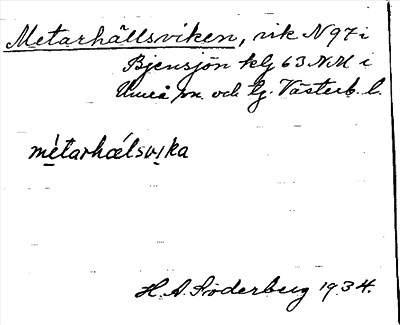 Metarhällsviken, vik N 97 i
Bjensjön klg 63 NM i
Umeå sn. och lg. Västerb. l.
mètarhœ́lsvika
H. A. Söderberg 1934.